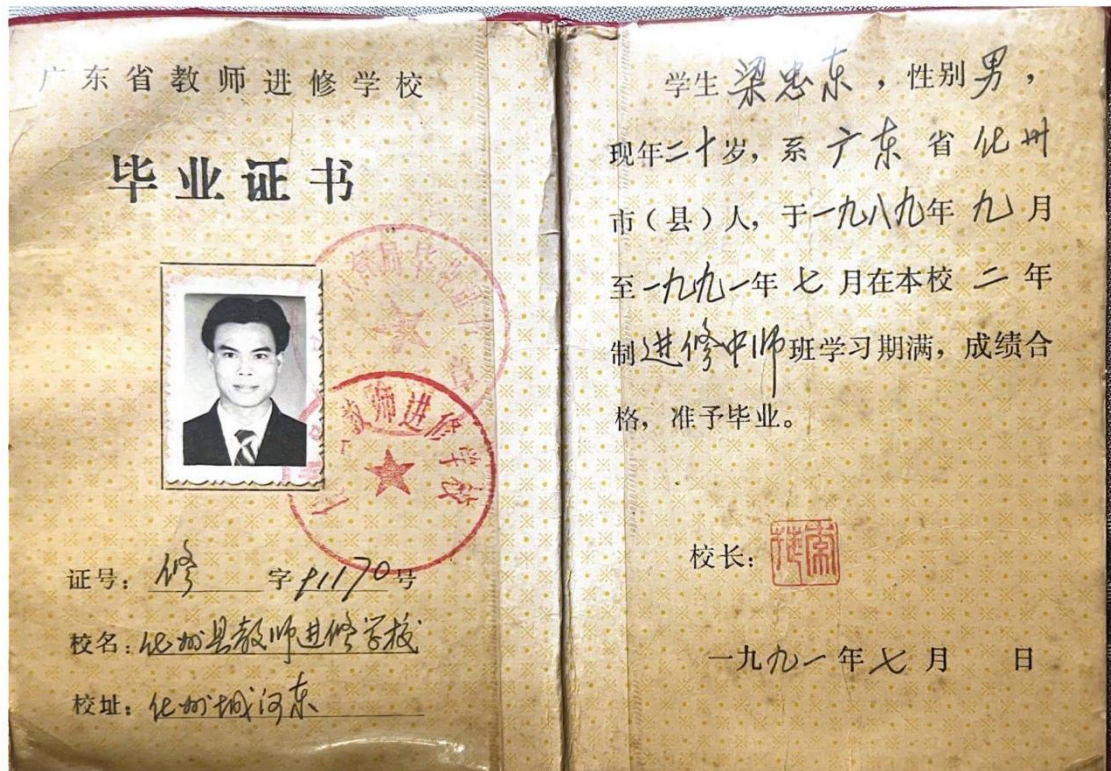 广东省教师进修学校
毕业证书
教师进修学校
证号：修 字91170号
校名：化州县教师进修学校
校址：化州城河东
学生梁忠东，性别男，
现年二十岁，系广东省化州
市（县）人，于一九八九年九月
至一九九一年七月在本校二年
制进修中师班学习期满，成绩合
格，准予毕业。
校长：
一九九一年七月 日